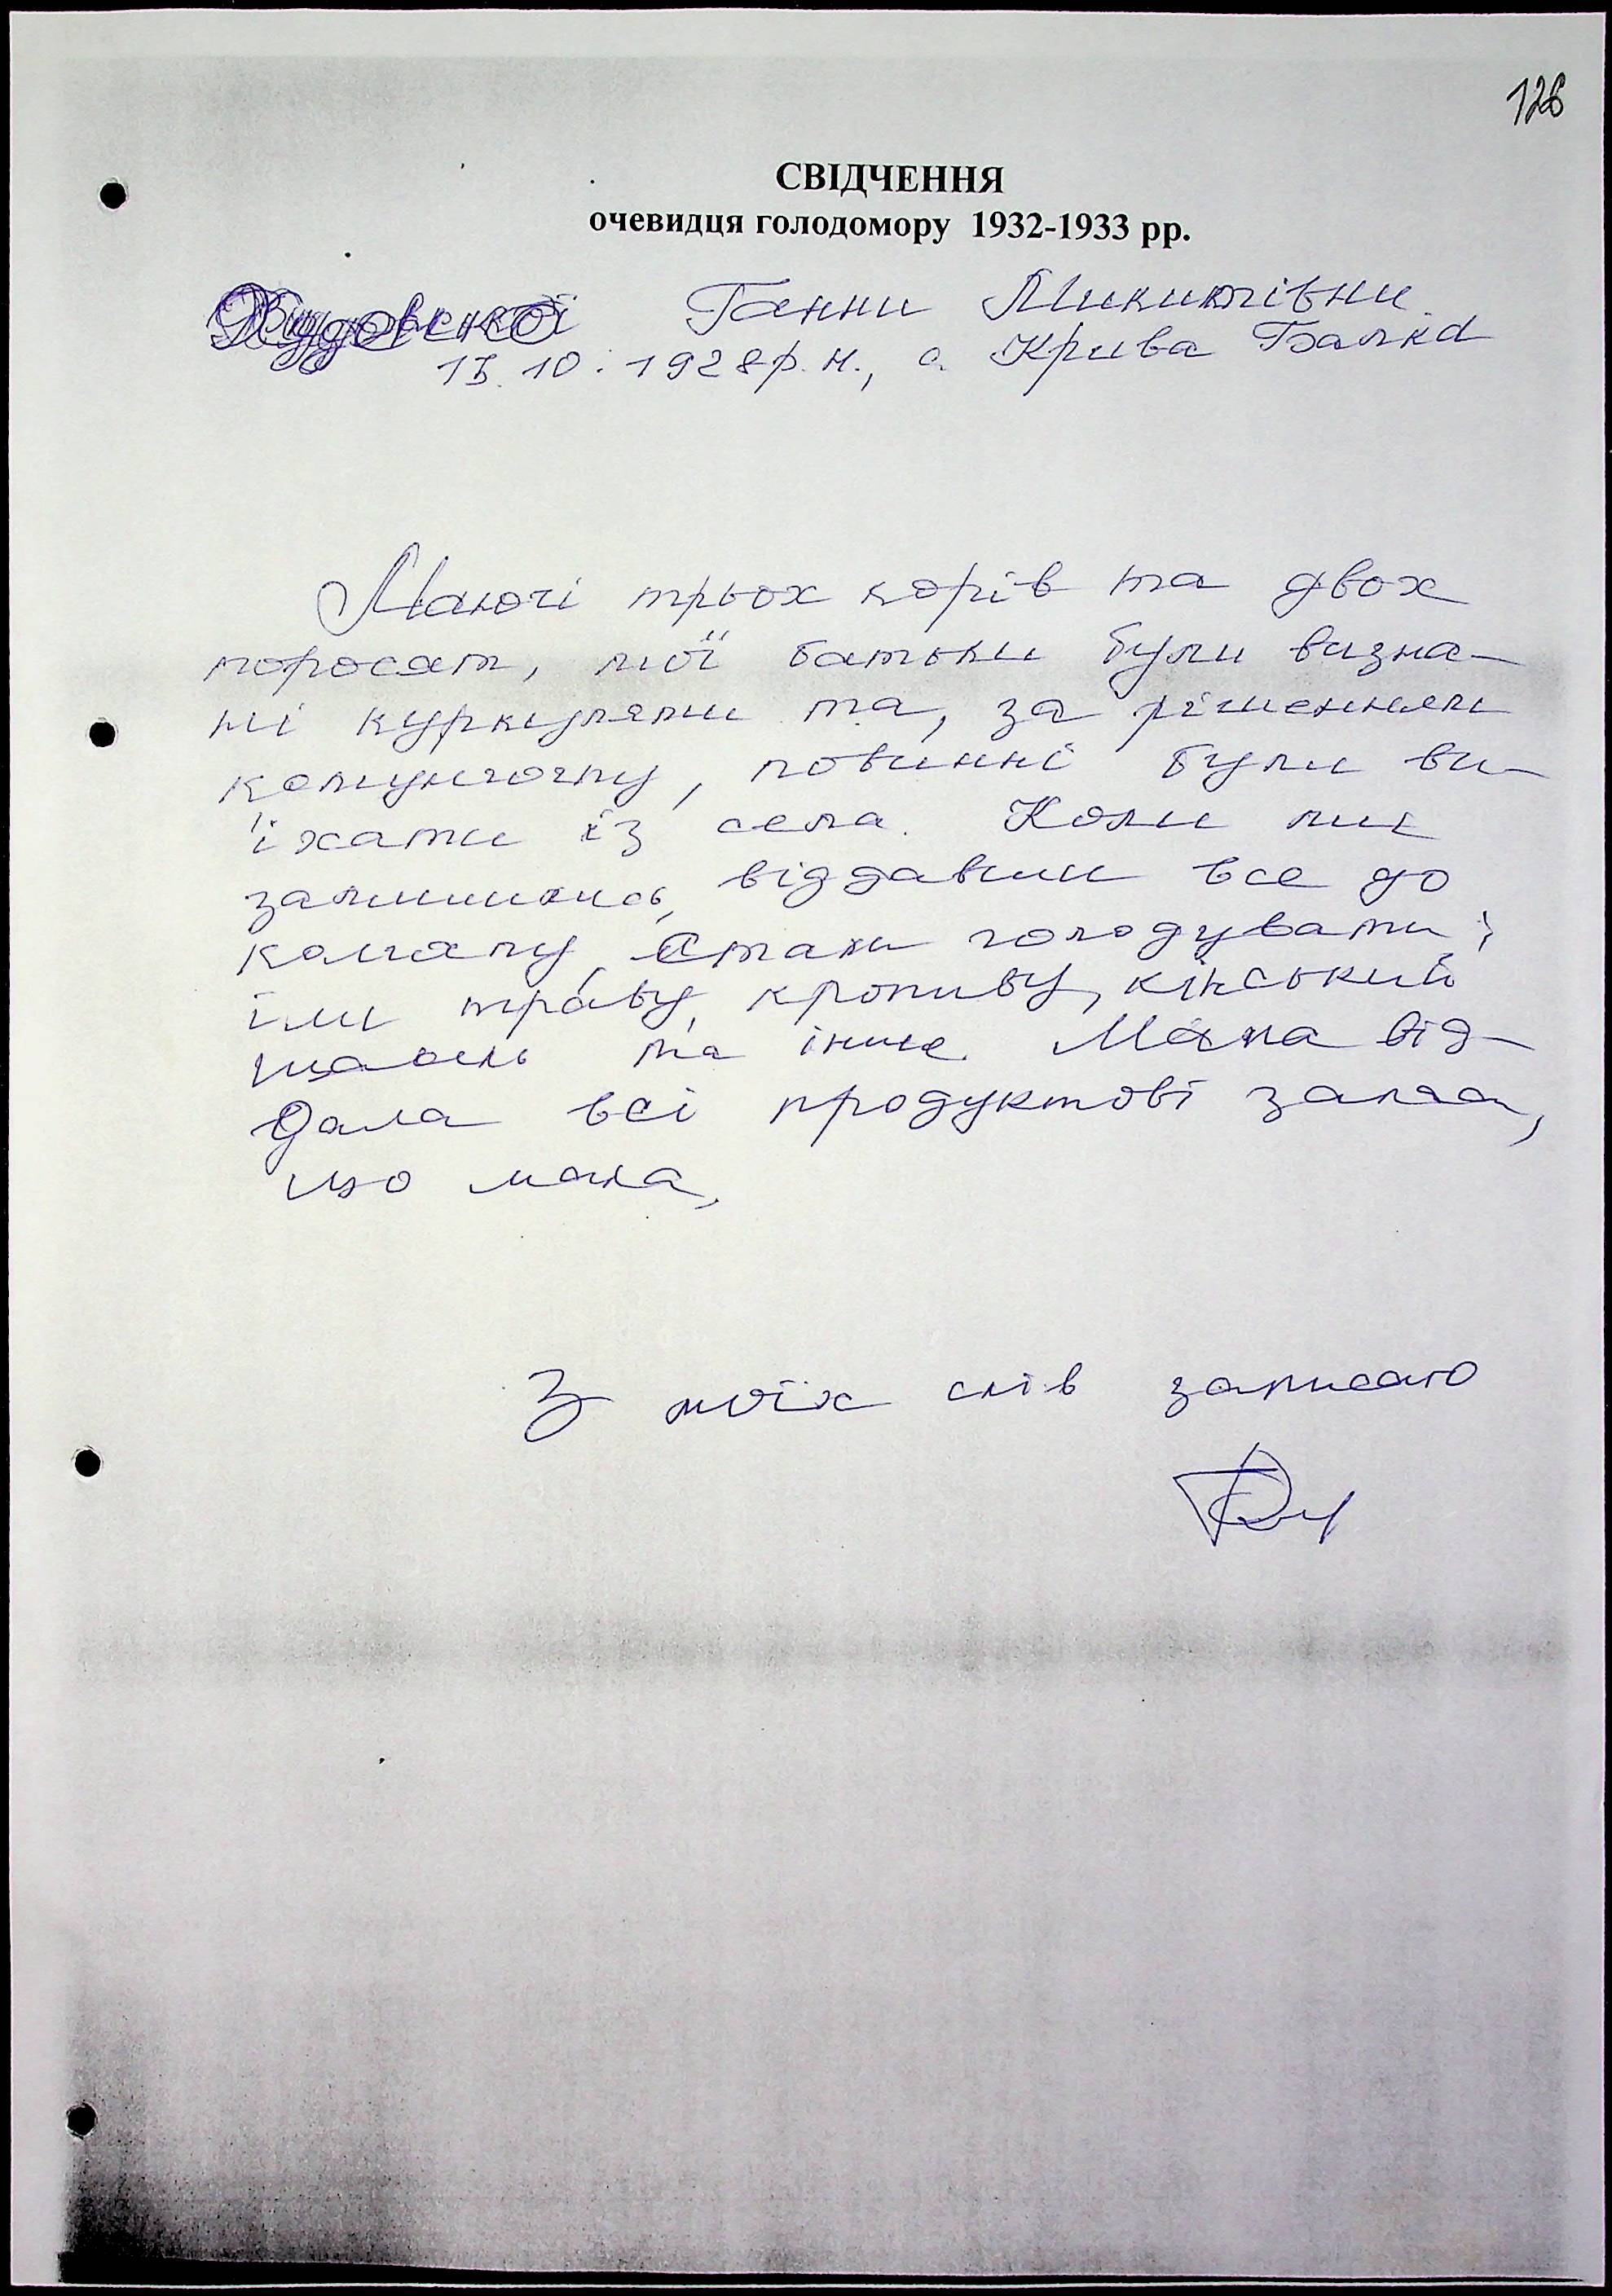 126
СВІДЧЕННЯ
очевидця голодомору 1932-1933 рр.
Ганни Микитівни
10.1928 р.н., с. Крива Балка
Маючі трьох корів та двох
поросят, мої батьки були визна-
ні куркулями та, за рішенням
комунгоспу, повинні були ви-
їхати із села. Коли ми
залишились, віддавши все до
колгоспу, стали голодувати;
їли траву, кропиву, кінський
щавель та інше. Мама від-
дала всі продуктові запаси,
що мала,
З моїх слів записано